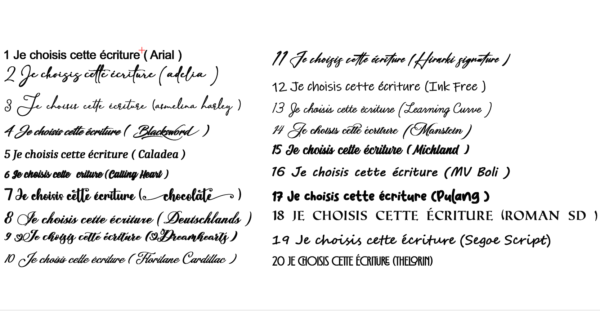 1 Je choisis cette écriture ( Arial )
2 Je choisis cette écriture ( adelia )
3 Je choisis cette écriture (asmelina harley )
4 Je choisis cette écriture ( Blacksword )
5 Je choisis cette écriture ( Caladea )
6 Je choisis cette criture (Calling Heart )
7 Je choisis cette écriture ( chocolate )
8 Je choisis cette écriture ( Deutschlands )
9 Je choisis cette écriture ( Dreamhearts )
10 Je choisis cette écriture ( Florilane Cardillac )
11 Je choisis cette écriture ( Hiraeki signature )
12 Je choisis cette écriture (Ink Free )
13 Je choisis cette écriture (Learning Curve )
14 Je choisis cette écriture ( Manstein )
15 Je choisis cette écriture ( Michland )
16 Je choisis cette écriture ( MV Boli )
17 Je choisis cette écriture (Pulang )
18 JE CHOISIS CETTE ÉCRITURE (ROMAN SD )
19 Je choisis cette écriture (Segoe Script)
20 JE CHOISIS CETTE ÉCRITURE (THELORIN)